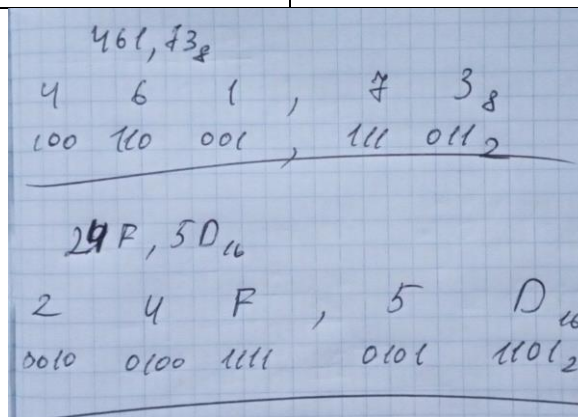 461,73₈
4 6 1 , 7 3₈
100 110 001 , 111 011₂
24F,5D₁₆
2 4 F , 5 D₁₆
0010 0100 1111 0101 1101₂